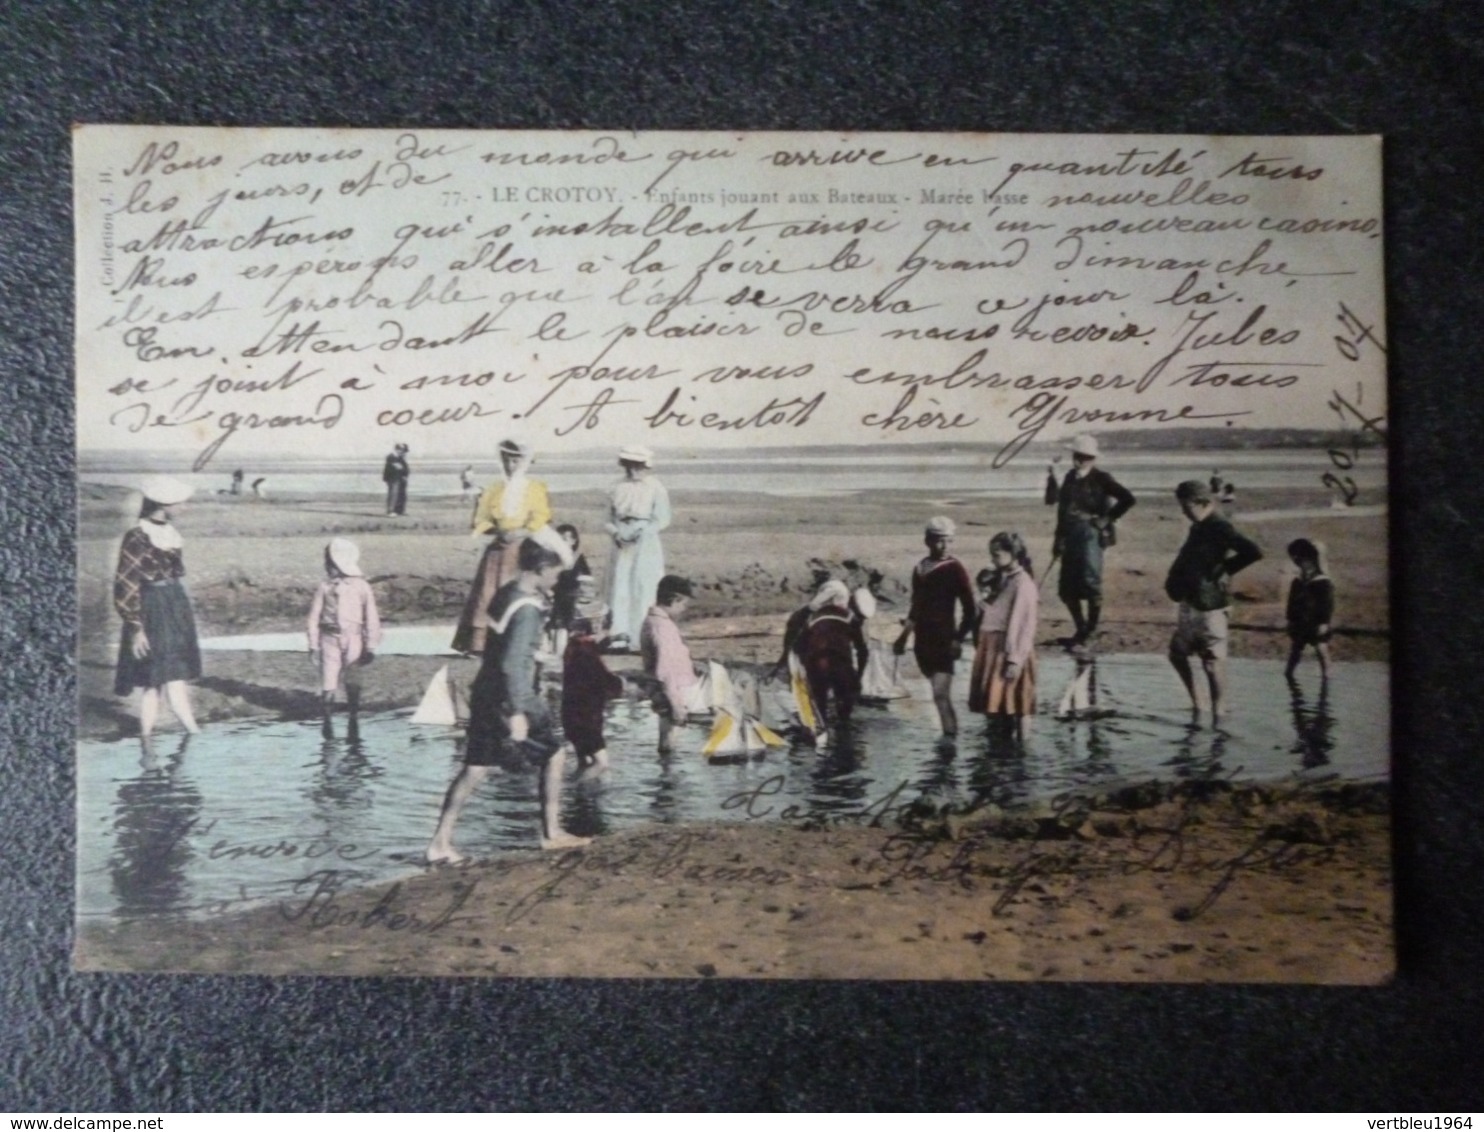 Nous avons du monde qui arrive en quantité tous
les jours, et de nouvelles
77. - LE CROTOY. - Enfants jouant aux Bateaux - Marée basse
attractions qui s'installent ainsi qu'un nouveau casino.
Nous espérons aller à la foire le grand dimanche
il est probable que l'on se verra ce jour là.
En attendant le plaisir de nous revoir. Jules
se joint à moi pour vous embrasser tous
de grand coeur. A bientôt chère Yvonne.
20-7-07
Collection J. H.
envoie
à Robert
vertbleu1964
delcampe.net